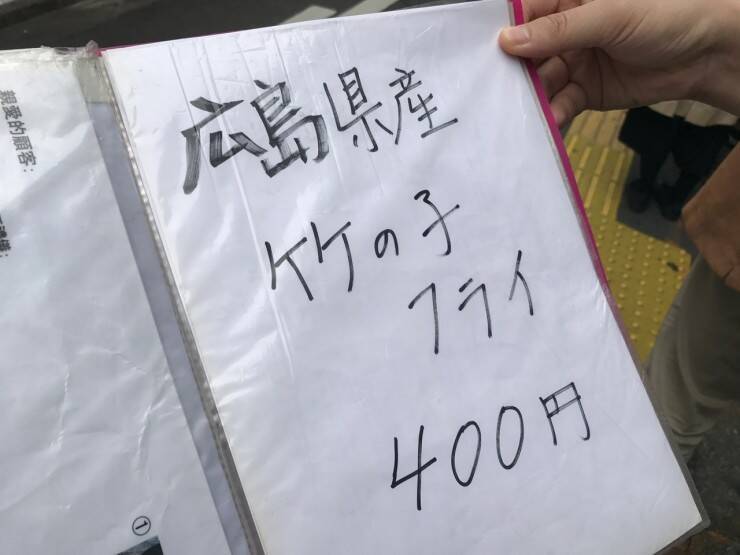 広島県産
竹の子
フライ
400円
親愛的顧客:
①